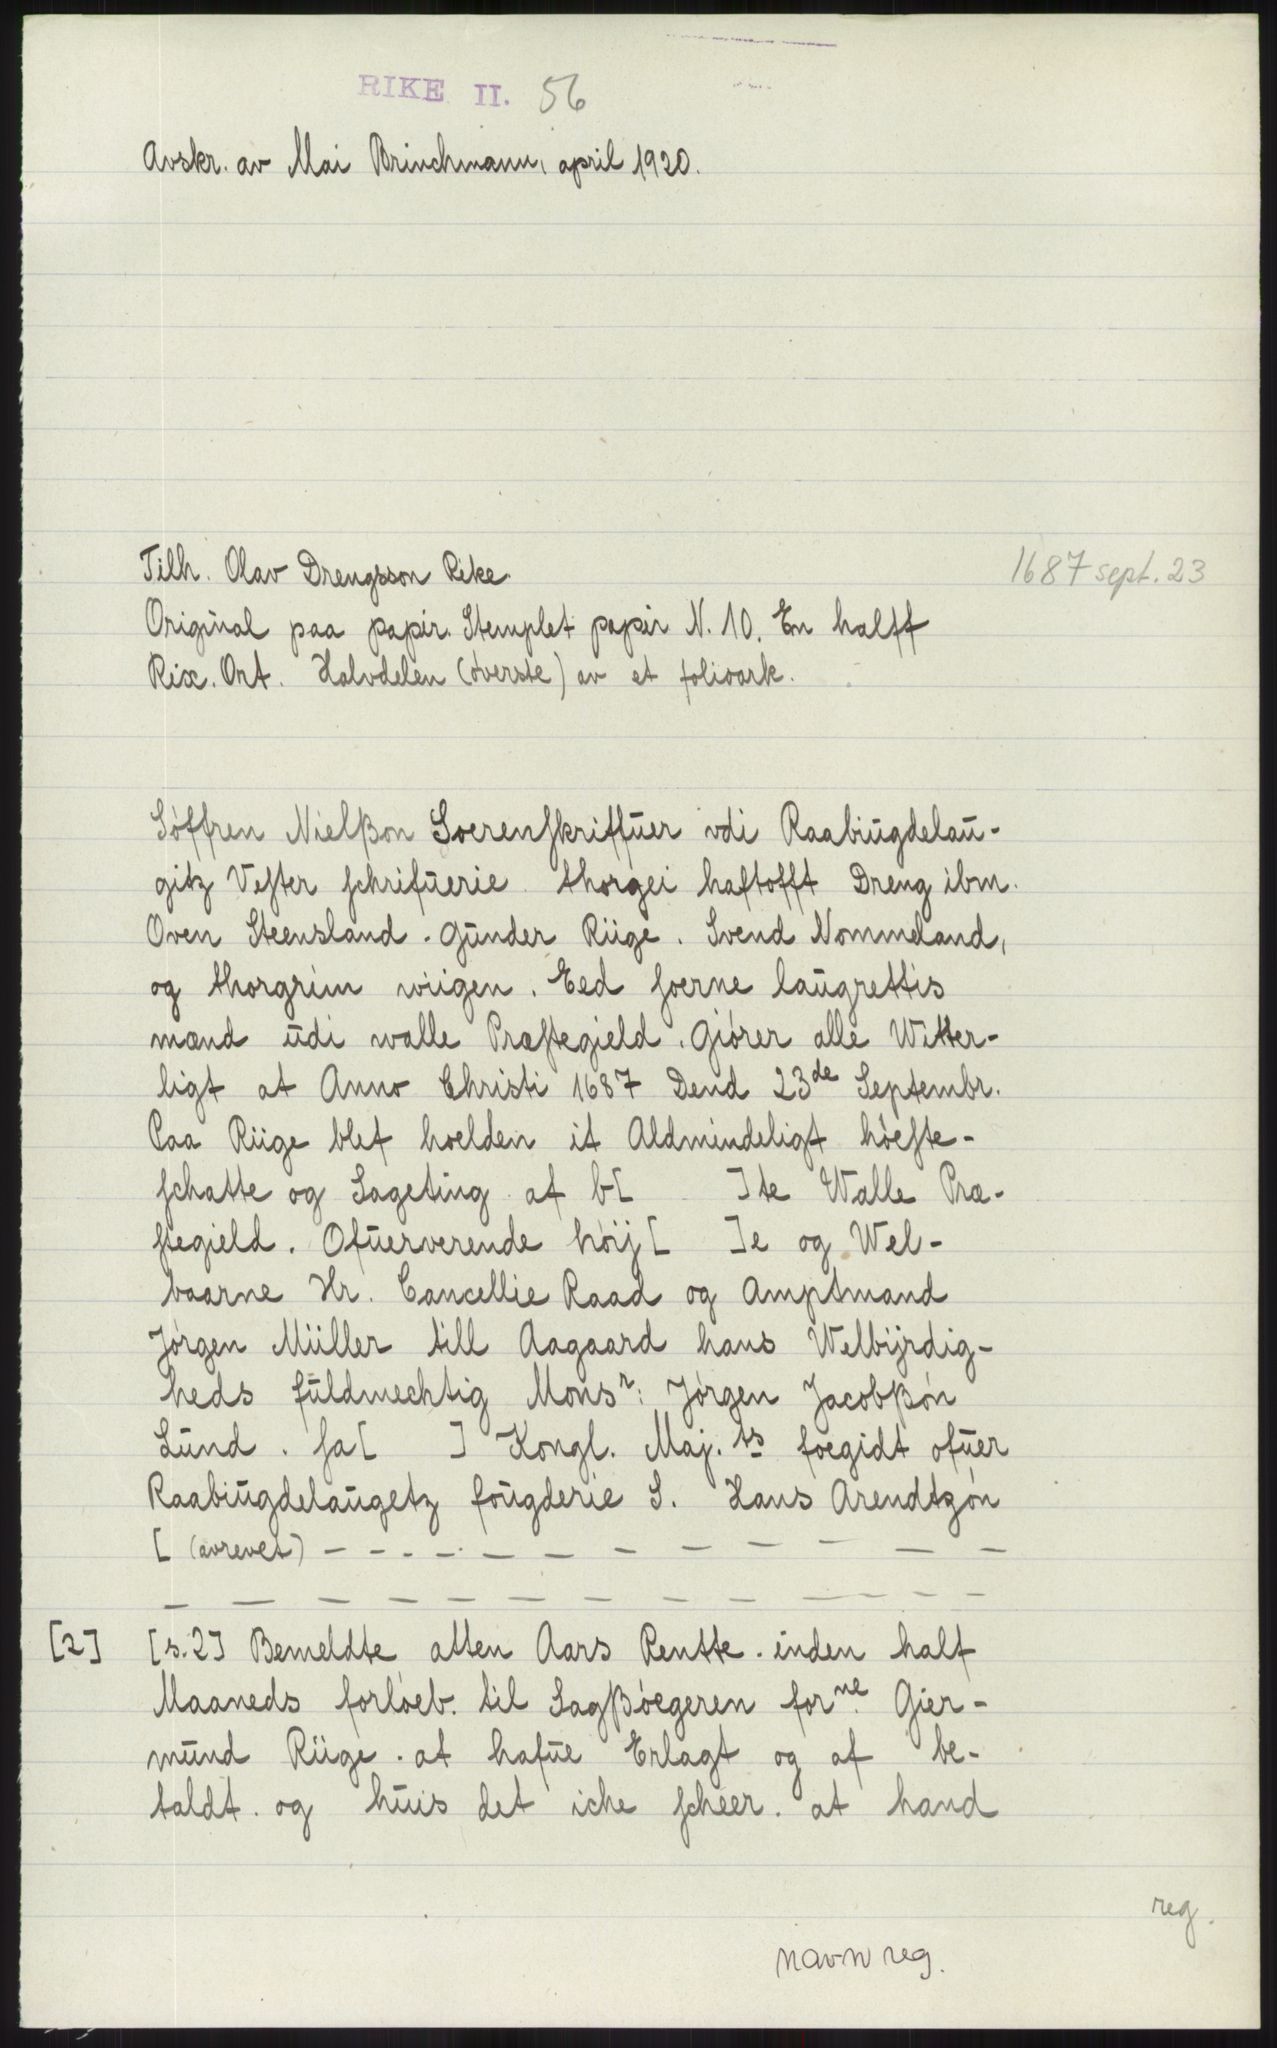 RIKE II. 56
Avskr. av Mai Brinchmann, april 1920.
Tilh. Olav Drengsson Rike.
1687 sept. 23
Original paa papir. Stemplet papir N. 10. En halff
Rix. Ort. Halvdelen (øverste) av et folioark.
Søffren Nielßon Soerenskriffuer vdi Raabiugdelau-
gitz Vester schrifuerie. thorgei haftofft Dreng ibm.
Oven Steensland. Gunder Riige. Svend Nommeland,
og thorgrim wiigen. Eed soerne laugrettis
mænd udi walle Præstegield. Giører alle Witter-
ligt at Anno Christi 1687 Dend 23de Septembr.
Paa Riige blef hoelden it Aldmindeligt høefte-
schatte og Sageting af b[ ]te Walle Præ-
stegield. Ofuerverende høij[ ]e og Wel-
baarne Hr. Cancellie Raad og Amptmand
Jørgen Müller till Aagaard hans Welbÿrdig-
heds fuldmechtig Monsr: Jørgen Jacobßøn
Lund. sa[ ] Kongl. Maj.ts foegidt ofuer
Raabiugdelaugetz fougderie S. Hans Arendtzøn
[ (avrevet) – – – – – – – – – – – –
– – – – – – – – – – – –
[2] [s.2] Bemeldte atten Aars Rentte. inden half
Maaneds forløeb. til Sagßøegeren forne. Gier-
mund Riige. at hafue Erlagt og af be-
taldt. og huis det iche scheer. at hand
reg.
navn reg.